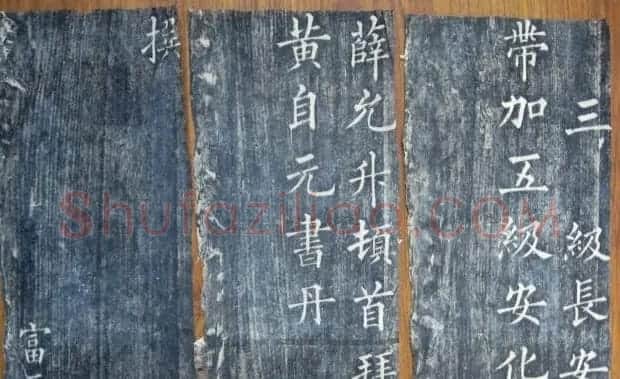 三級長安
帶加五級安化
薛允升頓首拜
黃自元書丹
撰
富
Shufaziliao.COM